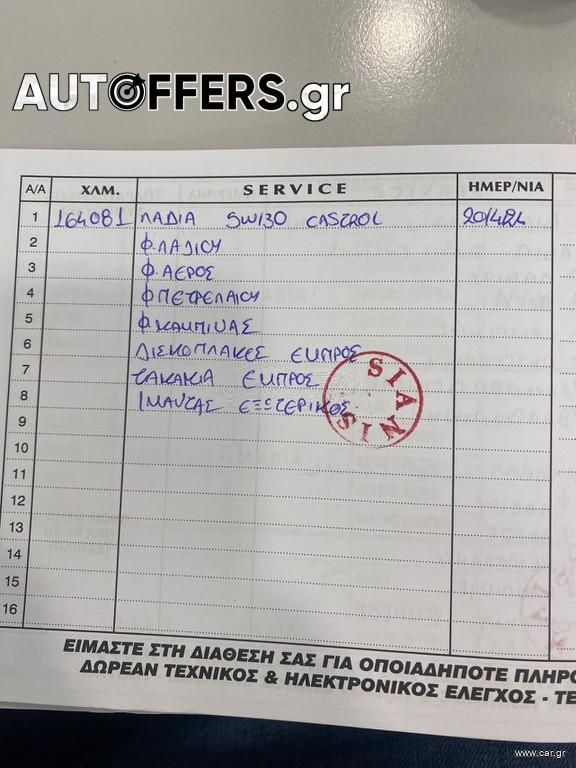 AUTOFFERS.gr
Α/Α ΧΛΜ. SERVICE ΗΜΕΡ/ΝΙΑ
1 164081 ΛΑΔΙΑ 5W130 CASTROL 20/4/24
2 Φ.ΛΑΔΙΟΥ
3 Φ.ΑΕΡΟΣ
4 Φ ΠΕΤΡΕΛΑΙΟΥ
5 Φ.ΚΑΜΠΙΝΑΣ
6 ΔΙΣΚΟΠΛΑΚΕΣ ΕΜΠΡΟΣ
7 ΤΑΚΑΚΙΑ ΕΜΠΡΟΣ
8 ΙΜΑΝΤΑΣ ΕΞΩΤΕΡΙΚΟΣ
SIANIS
9
10
11
12
13
14
15
16
ΕΙΜΑΣΤΕ ΣΤΗ ΔΙΑΘΕΣΗ ΣΑΣ ΓΙΑ ΟΠΟΙΑΔΗΠΟΤΕ ΠΛΗΡΟ
ΔΩΡΕΑΝ ΤΕΧΝΙΚΟΣ & ΗΛΕΚΤΡΟΝΙΚΟΣ ΕΛΕΓΧΟΣ - ΤΕ
www.car.gr